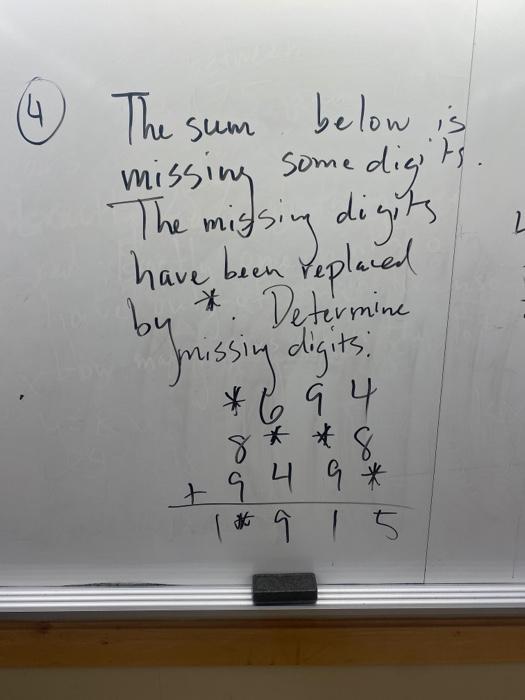 4 The sum below is
missing some digits.
The missing digits
have been replaced
by *. Determine
missing digits:
* 6 9 4
8 * * 8
+ 9 4 9 *
1 * 9 1 5